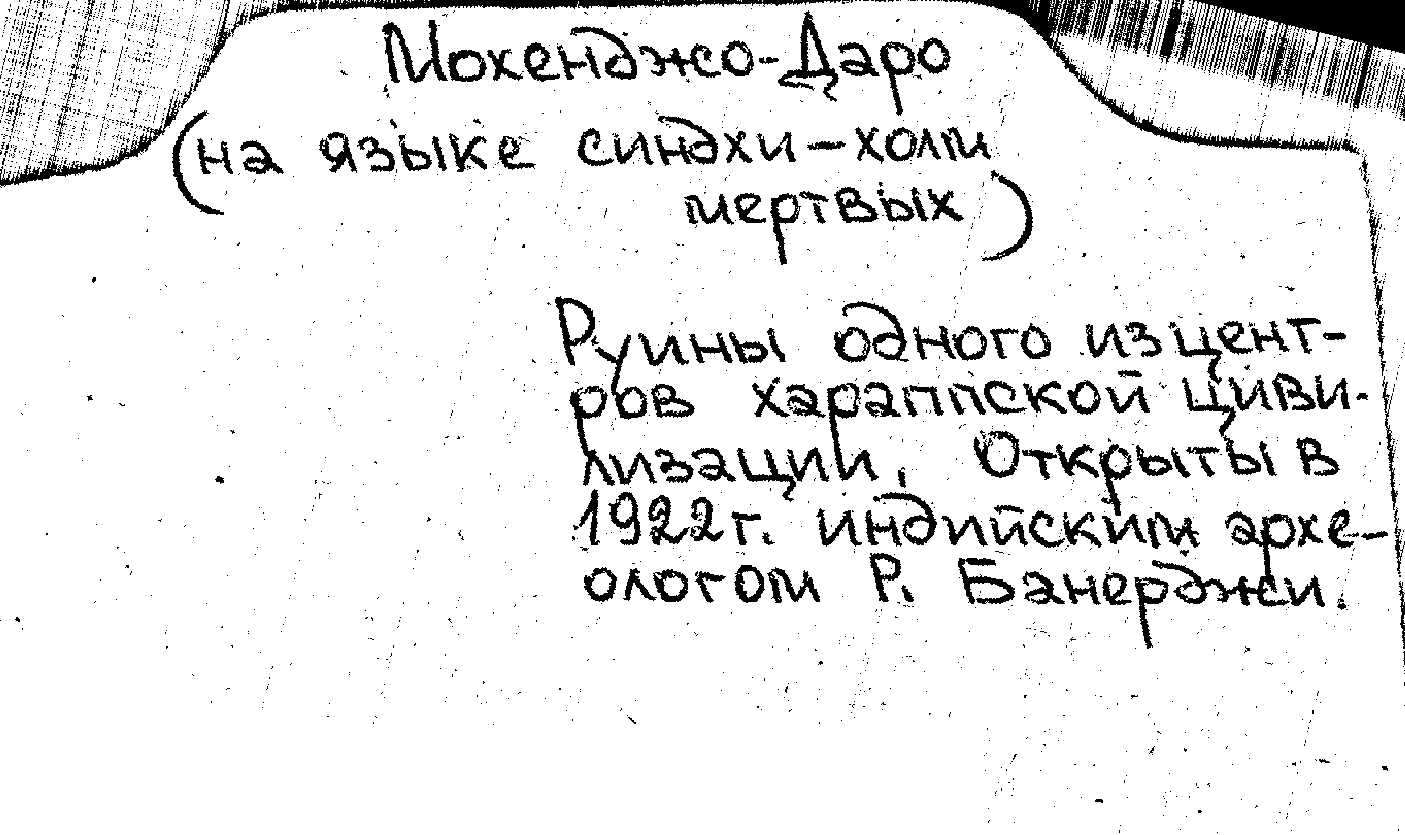 Мохенджо-Даро
(на языке синдхи – холм
мертвых)
Руины одного из цент-
ров хараппской циви-
лизации. Открыты в
1922г. индийским архе-
ологом Р. Банерджи.